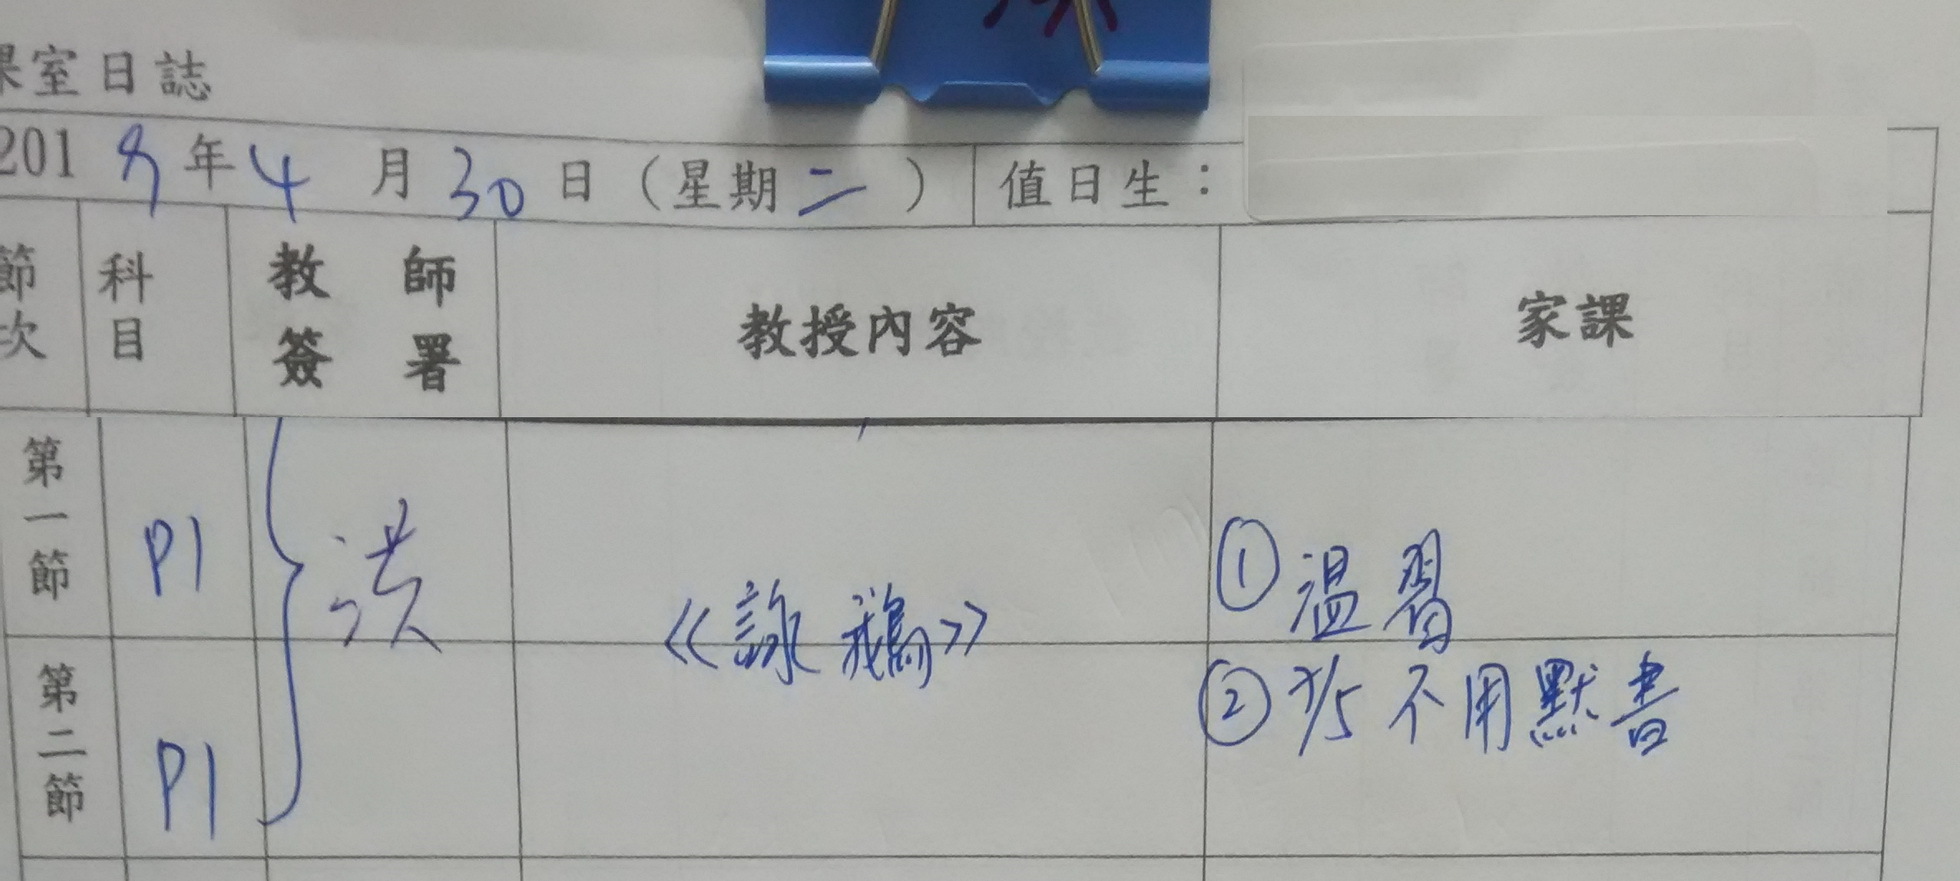 課室日誌
2019年4月30日（星期二）　值日生：
節次　科目　教師簽署　教授內容　家課
第一節　P1　洪　《詠鵝》　①溫習
第二節　P1　②7/5不用默書